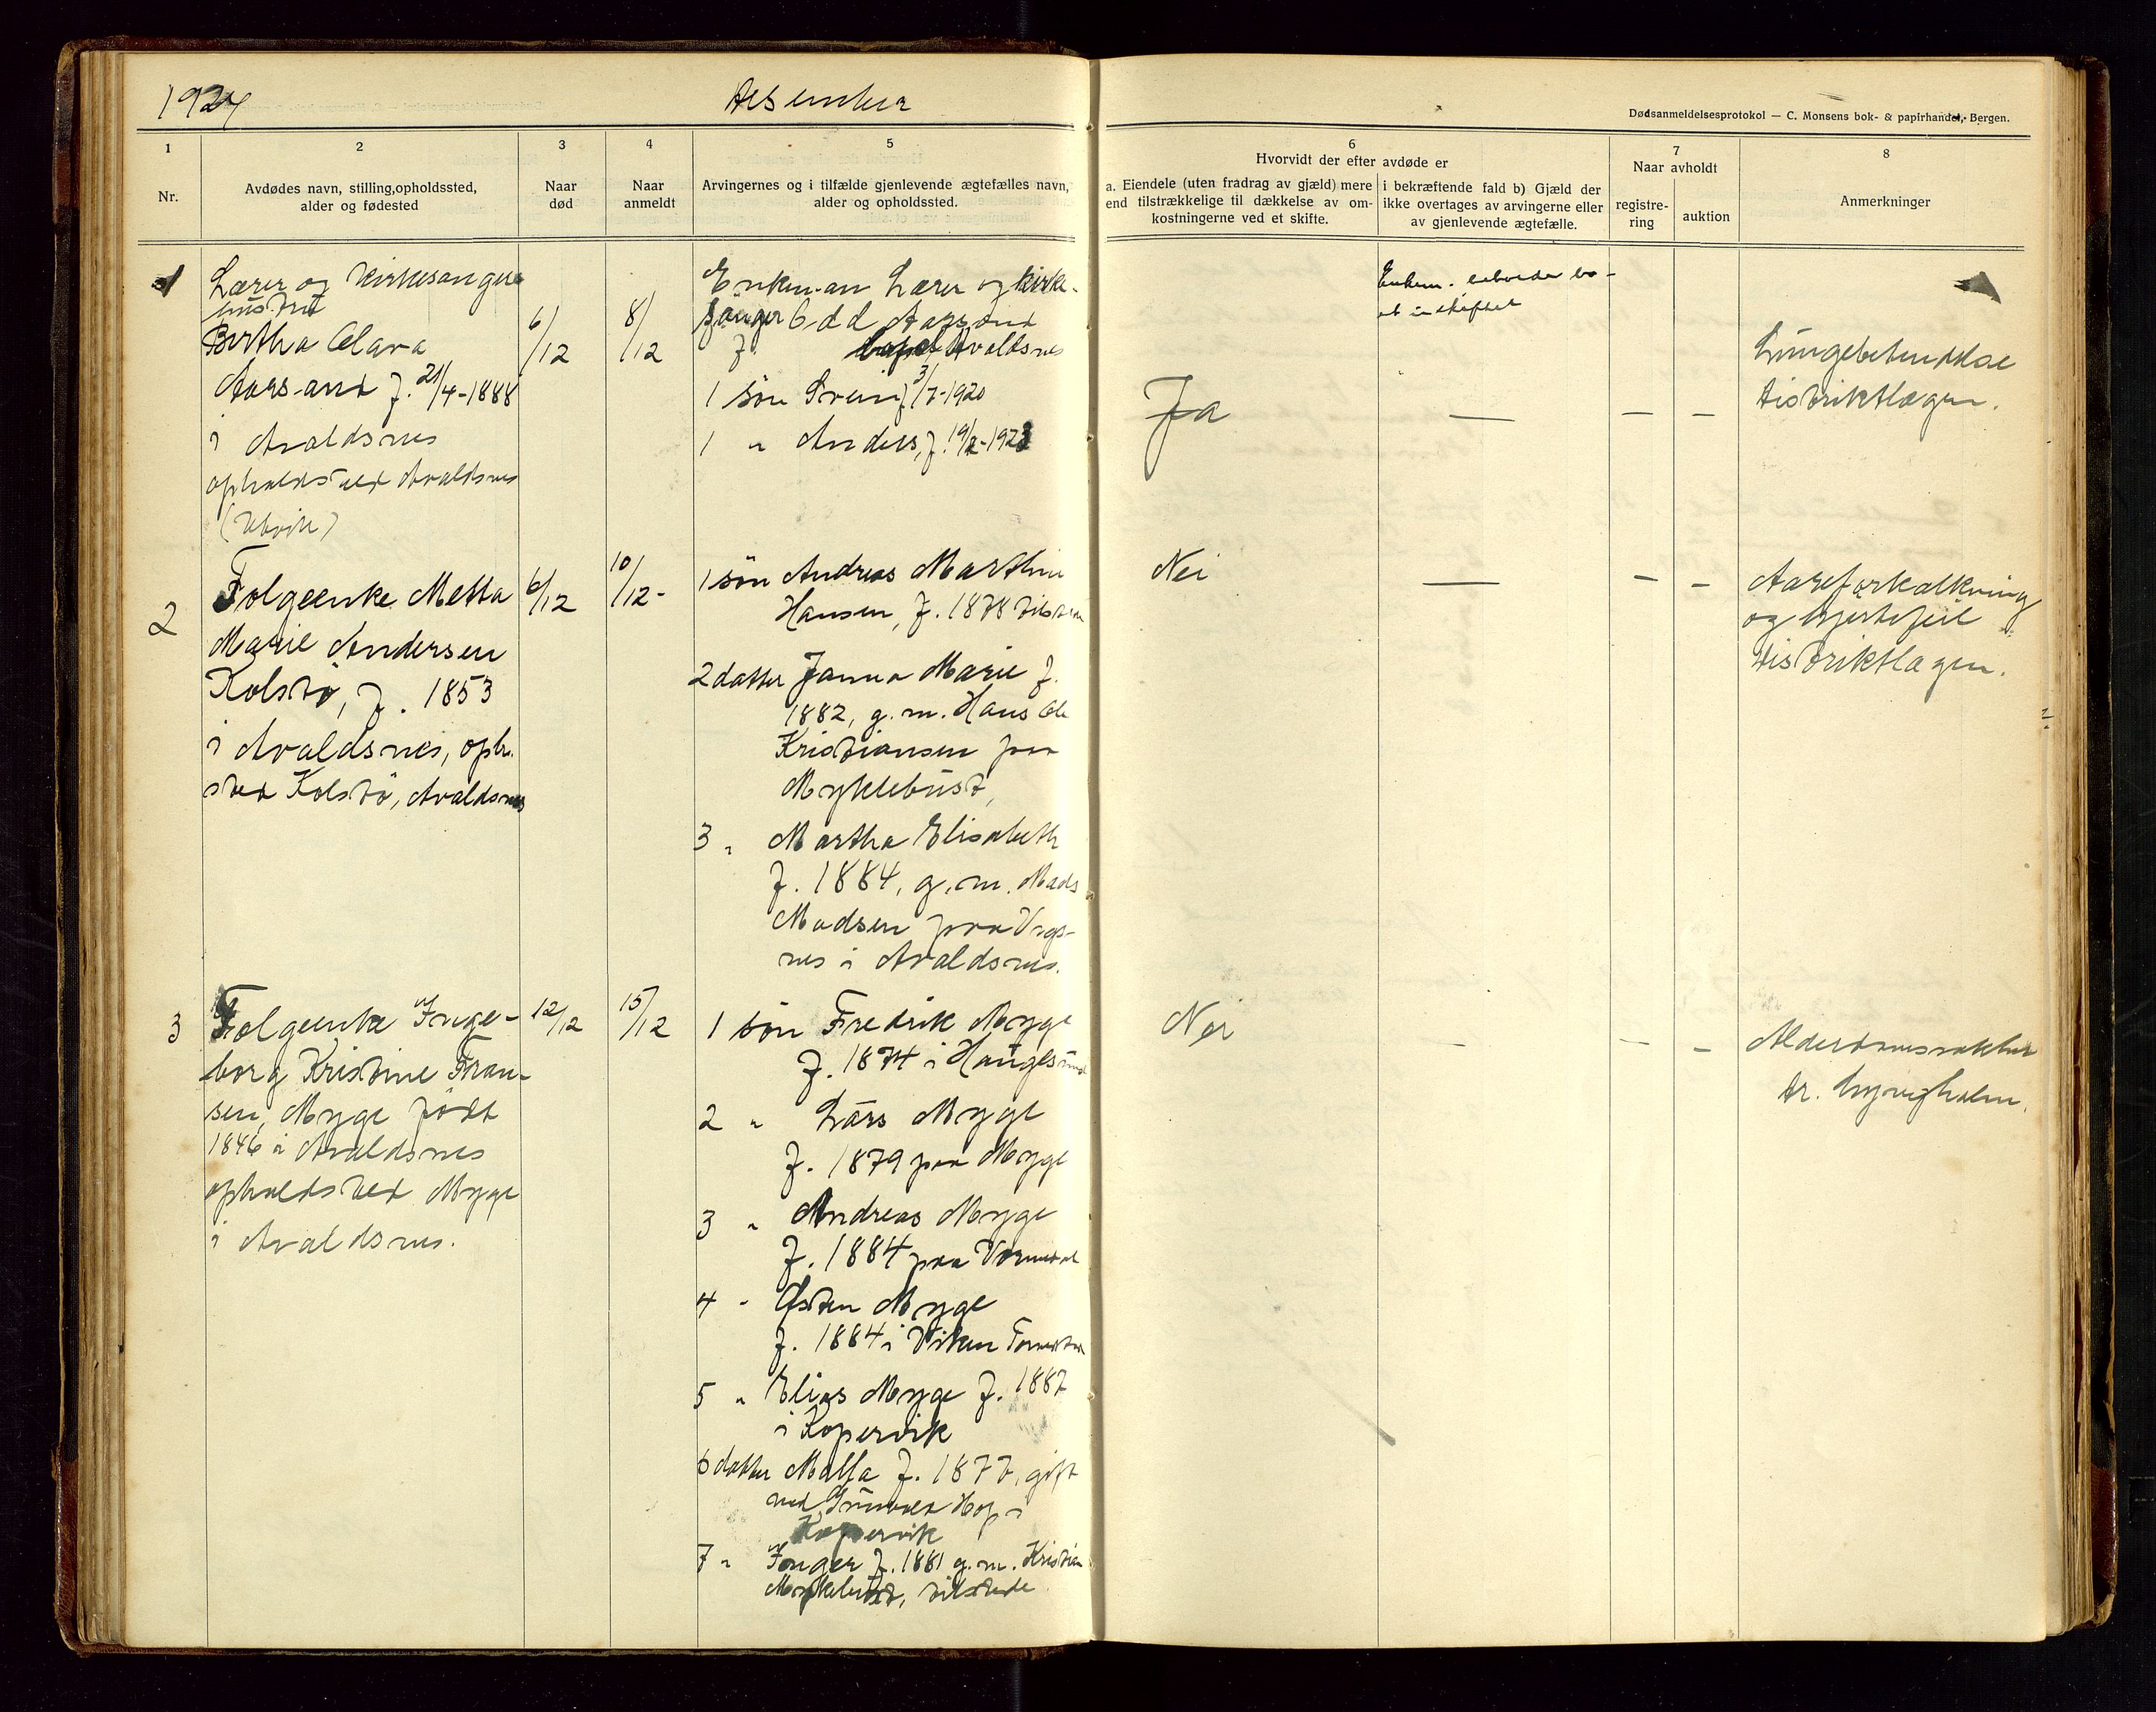 1924
Desember
Dødsanmeldelsesprotokol — C. Monsens bok- & papirhandel, Bergen.
1
Nr.
2
Avdødes navn, stilling, opholdssted,
alder og fødested
3
Naar
død
4
Naar
anmeldt
5
Arvingernes og i tilfælde gjenlevende ægtefælles navn,
alder og opholdssted.
6
Hvorvidt der efter avdøde er
a. Eiendele (uten fradrag av gjæld) mere
end tilstrækkelige til dækkelse av om-
kostningerne ved et skifte.
i bekræftende fald b) Gjæld der
ikke overtages av arvingerne eller
av gjenlevende ægtefælle.
7
Naar avholdt
registre-
ring
auktion
8
Anmerkninger
1
Lærer og Kirkesanger
hustru
Bertha Clara
Aarsand f. 21/4-1888
i Avaldsnes
opholdssted Avaldsnes
(Utvik)
6/12
8/12
Enkeman Lærer og kirke-
sanger Odd Aarsand
f. Avaldsnes
1 søn Svein f. 3/7-1920
1 " Anders, f. 19/2-1923
Ja
Enkem. beholder bo-
et uskiftet
—
— —
Lungebetendelse
Distriktlægen.
2
Folgeenke Metta
Marie Andersen
Kolstø, f. 1853
i Avaldsnes, oph.
sted Kolstø, Avaldsnes
6/12
10/12-
1 søn Andreas Marthin
Hansen, f. 1878 tilstede
2 datter Janna Marie f.
1882, g. m. Hans Ole
Kristiansen paa
Myklebust,
3 " Martha Elisabeth
f. 1884, g. m. Mads
Madsen paa Visnes
i Avaldsnes.
Nei
—
— —
Aareforkalkning
og hjertefeil
Distriktlægen.
3
Folgeenke Inge-
borg Kristine Fran-
sen, Myge født
1846 i Avaldsnes
opholdssted Myge
i Avaldsnes.
12/12
15/12
1 søn Fredrik Myge
f. 1874 i Haugesund
2 " Lars Myge
f. 1879 paa Myge
3 " Andreas Myge
f. 1884 paa Vormedal
4 " Østen Myge
f. 1884 i Viken Torvestad
5 " Elias Myge f. 1887
i Kopervik
6 datter Malla f. 1877, gift
med Gunvald Hop i
Kopervik
7 " Inger f. 1881 g. m. Kristian
Myklebust, tilstede
Nei
—
— —
Alderdomssvakhet
dr.